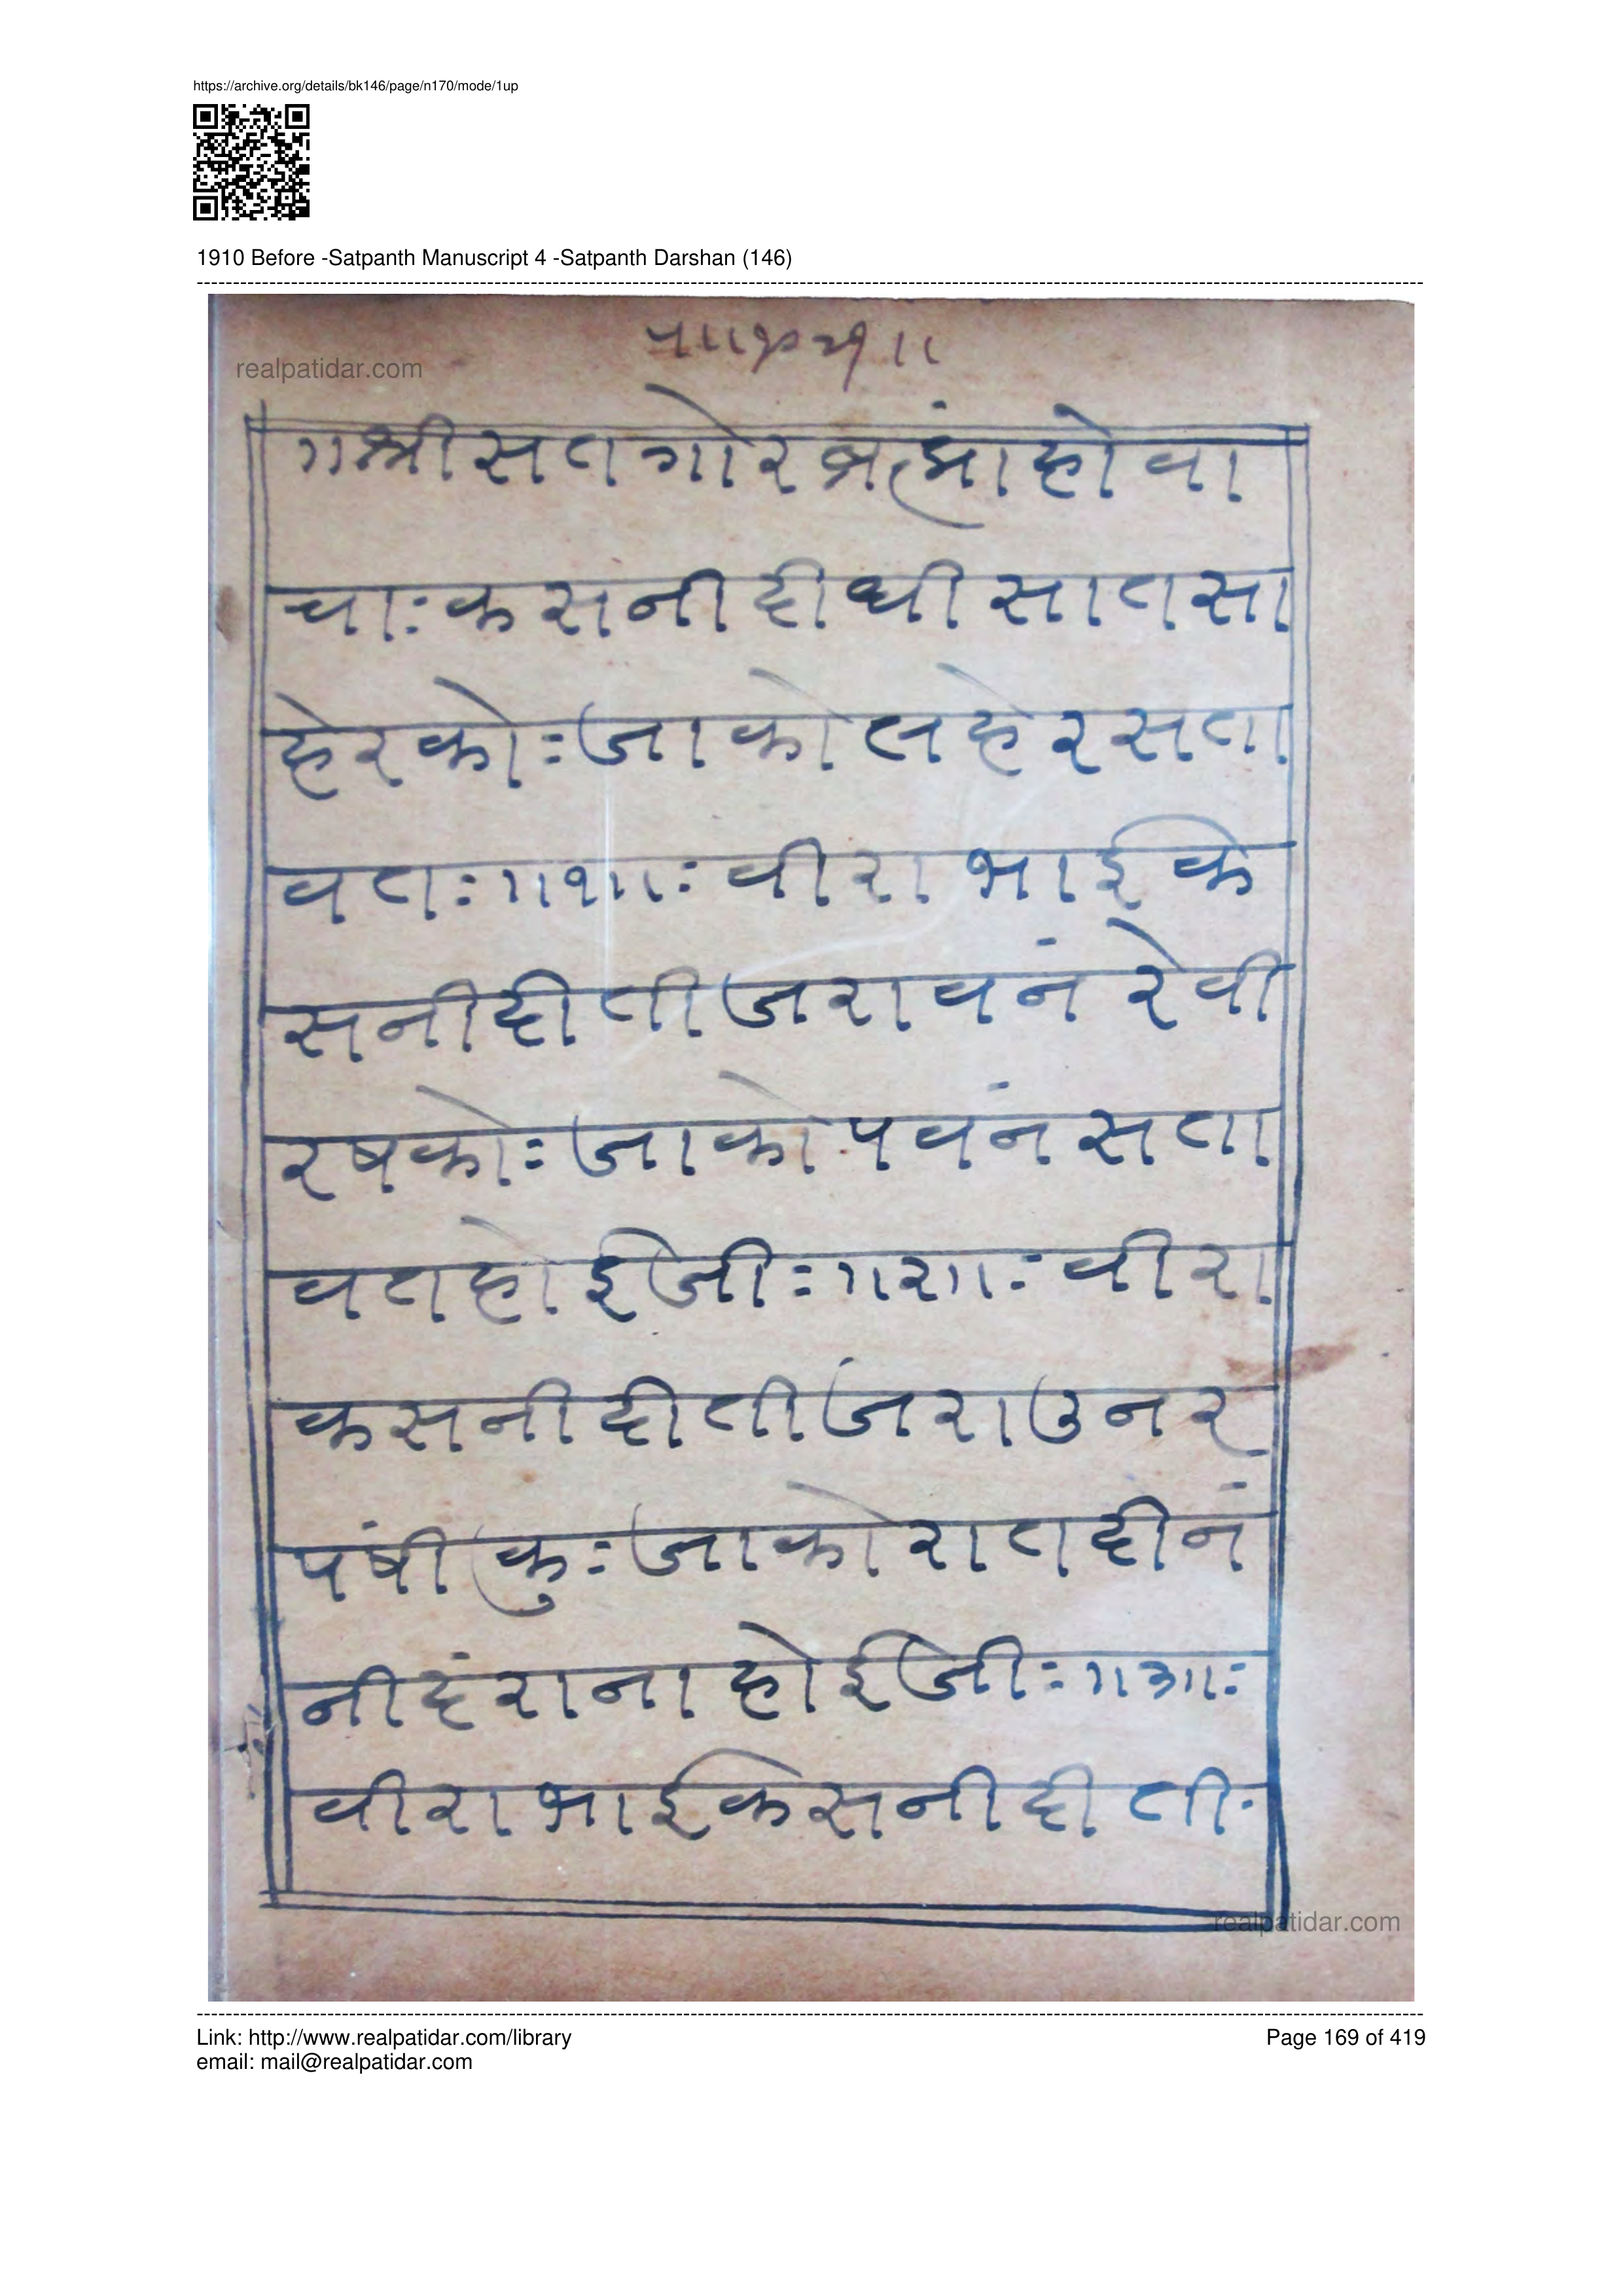 https://archive.org/details/bk146/page/n170/mode/1up
1910 Before -Satpanth Manuscript 4 -Satpanth Darshan (146)
realpatidar.com
॥श्रीसतगोरब्रह्मांहोवा
चाःकसनीदीधीसातसा
हेरकोःजाकोलहेरसता
वतः॥१॥ःवीराभाईके
सनीदीतीजरावनंरेवी
रषकोःजाकोपवनंसता
वतहोईजीः॥२॥ःवीरा
कसनीदीतीजंराउनर
पंषीकुःजाकोरातदीनं
नीदंरानाहोईजीः॥३॥ः
वीराभाईकेसनीदीती
realpatidar.com
Link: http://www.realpatidar.com/library
Page 169 of 419
email: mail@realpatidar.com